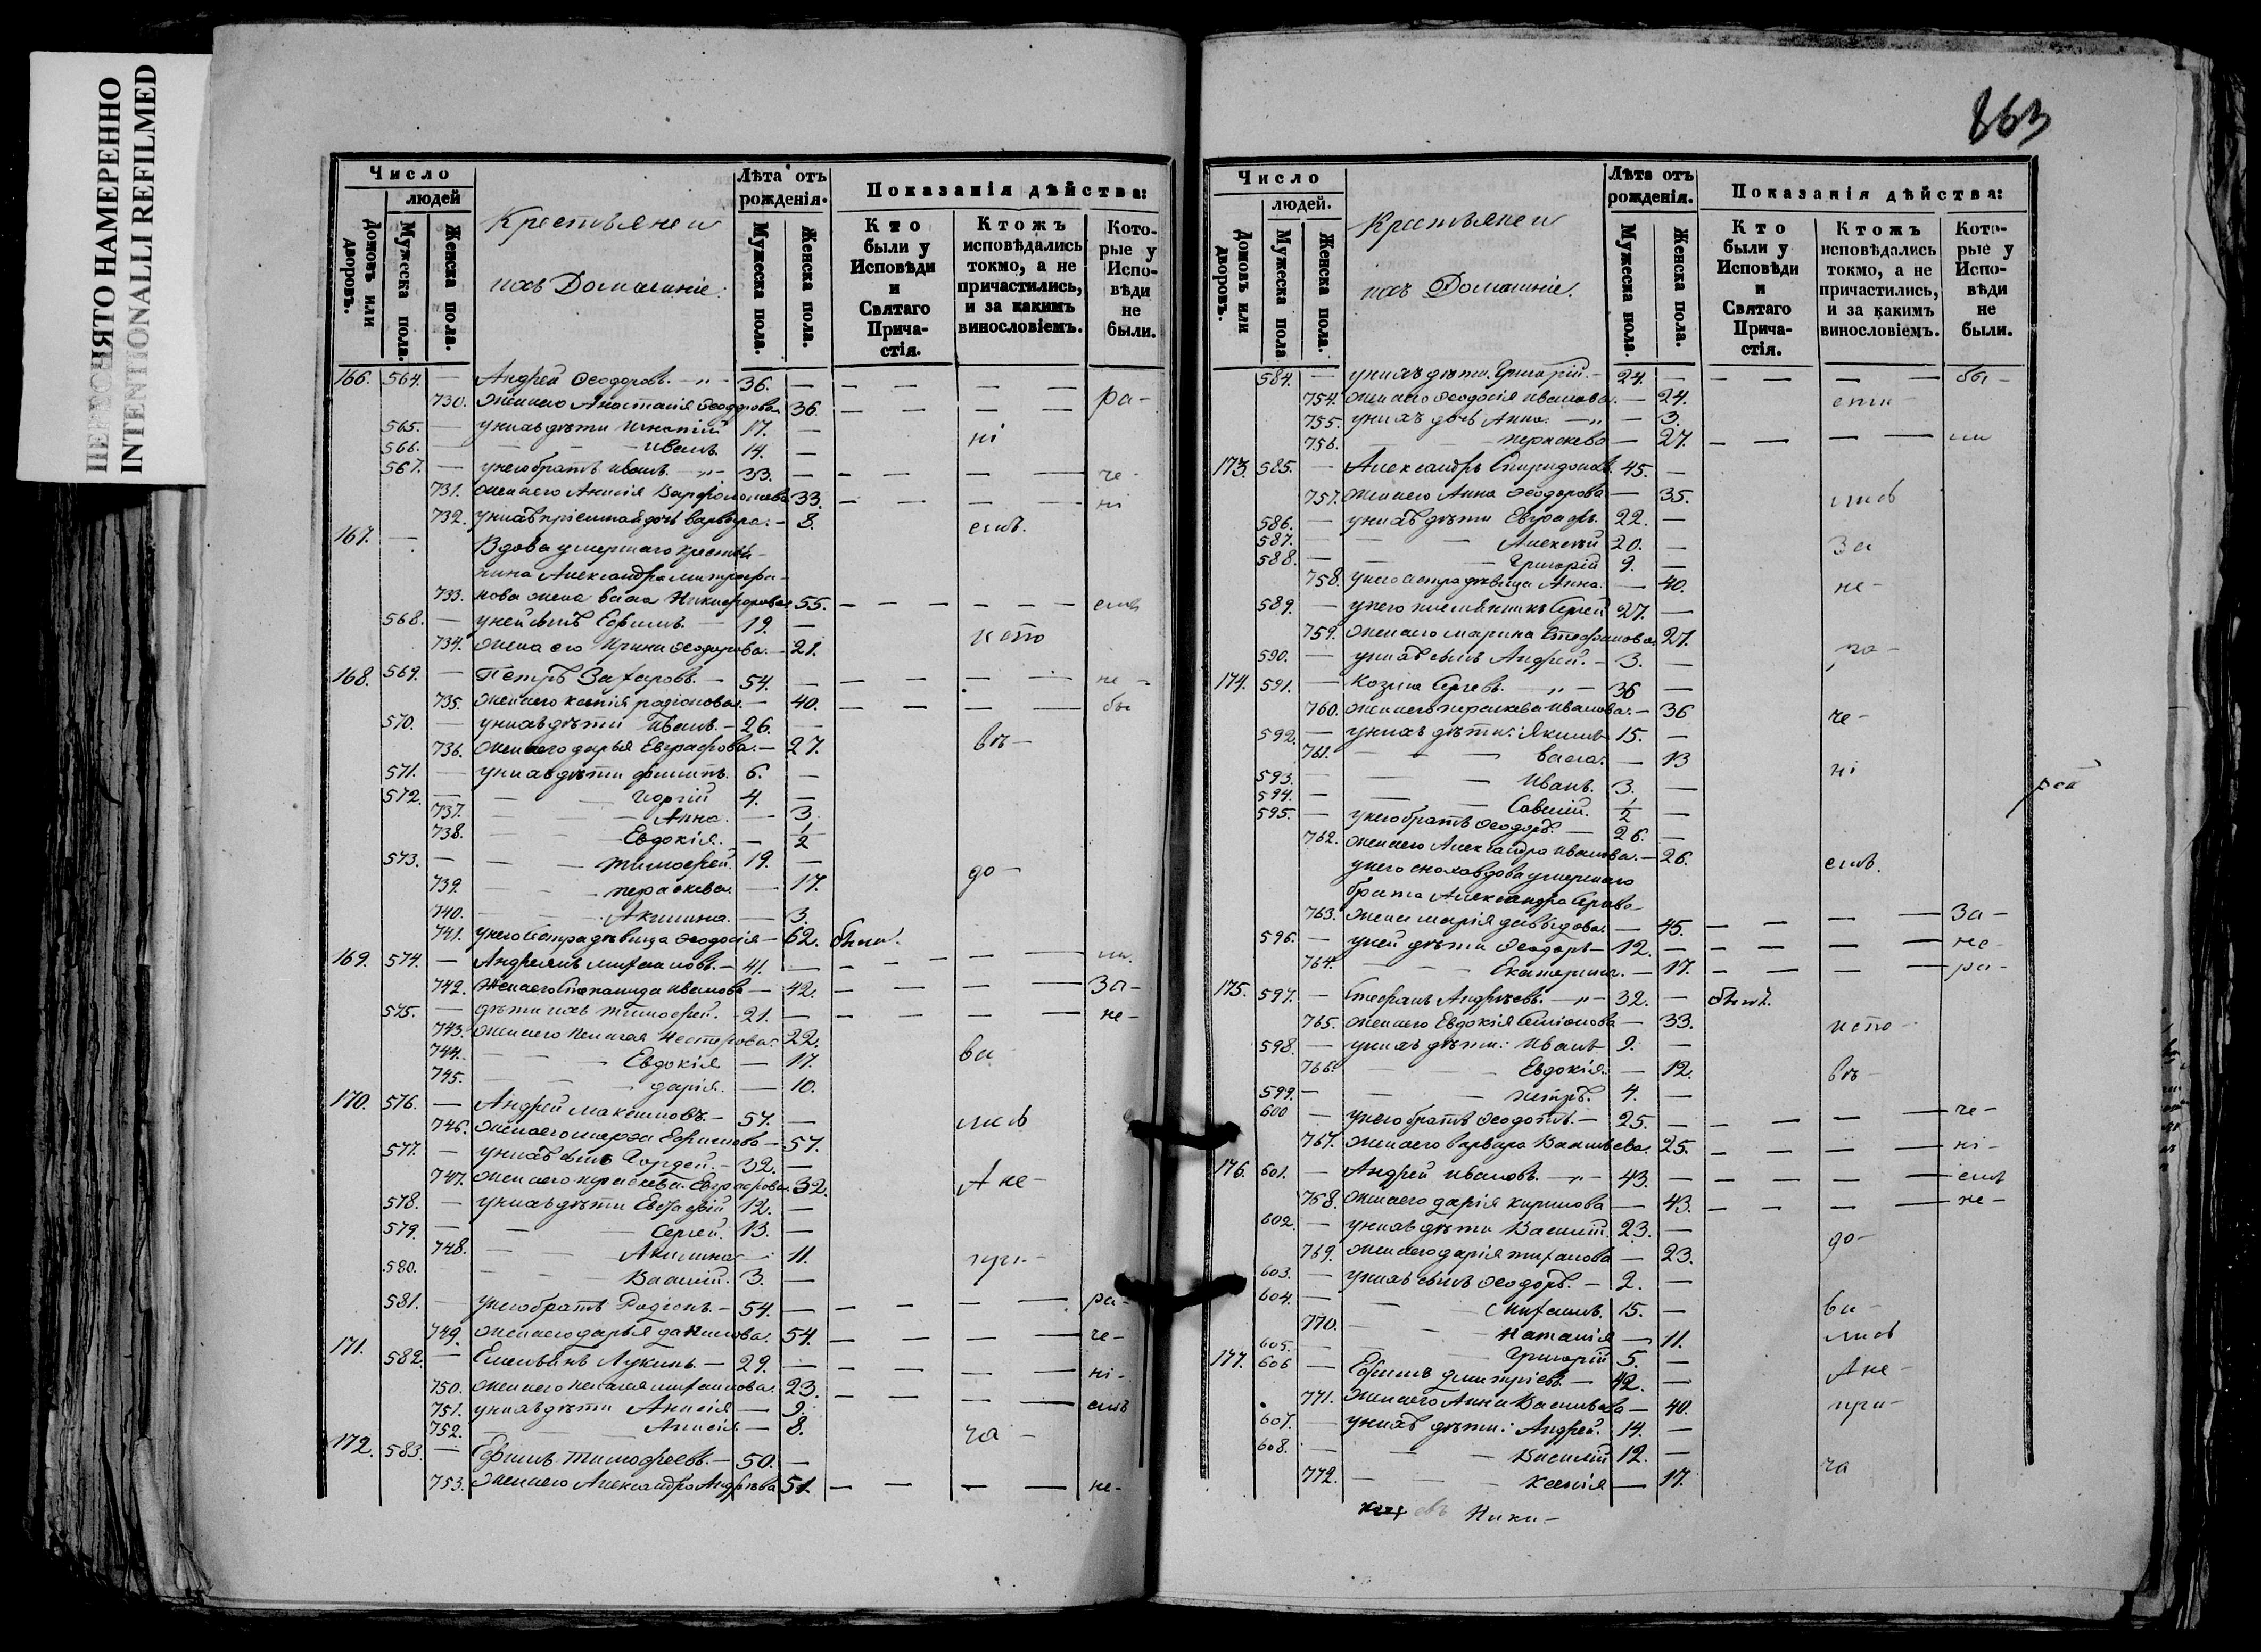 ПЕРЕСНЯТО НАМЕРЕННО
INTENTIONALLI REFILMED
863
Число
людей
Домовъ или дворовъ.
Мужеска пола.
Женска пола.
Крестьяне и
ихъ Домашніе.
Лѣта отъ рожденія.
Мужеска пола.
Женска пола.
Показанія дѣйства:
Кто были у Исповѣди и Святаго Прича-стія.
Ктожъ исповѣдались токмо, а не причастились, и за какимъ винословіемъ.
Кото-рые у Испо-вѣди не были.
166. 564. — Андрей Ѳеодоровъ. — 36. —
730. Жена его Анастасія Ѳеодорова 36. ра-
565. — у нихъ дѣти Игнатій 17. — ні
566. — Иванъ 14. —
567. — у него братъ Иванъ. — 33. — че-
731. Жена его Анисія Варфоломеева 33. ні
732. у нихъ пріемная дочь Варвара. — 8. емъ.
167. — Вдова умершаго крестья-
нина Александра Митрофа-
733. нова жена Васса Никифорова 55. емъ
568. — у ней сынъ Ефимъ. — 19. — испо
734. Жена его Ирина Ѳеодорова. — 21.
168. 569. — Петръ Захаровъ. — 54. — не-
735. Жена его Ксенія Радіонова. — 40. бы
570. — у нихъ дѣти Иванъ. — 26. —
736. Жена его Дарья Евграфова. — 27. вѣ-
571. — у нихъ дѣти Филипъ. 6. —
572. — Георгій 4. —
737. Анна. — 3.
738. Евдокія. — 1/2
573. — Тимофей. 19. — до-
739. Параскева. — 17.
740. Акилина. — 3.
741. у него сестра дѣвица Ѳеодосія — 62. была.
169. 574. — Андреянъ Михаиловъ. — 41. — ли.
742. Жена его Степанида Иванова — 42. За-
575. — дѣти ихъ Тимофей. — 21. — не-
743. Жена его Пелагея Нестерова. 22.
744. Евдокія — 17. ва
745. Дарія. — 10.
170. 576. — Андрей Максимовъ. — 57. — лись
746. Жена его Марѳа Ефимова — 57.
577. — у нихъ сынъ Гордей. — 32. —
747. Жена его Параскева Евграфова 32. А не-
578. — у нихъ дѣти Евстафій 12. —
579. — Сергей. 13. —
748. Акилина — 11. при-
580. Василій. 3. —
581. — у него братъ Радіонъ. — 54. — ра-
749. Жена его Дарья Данилова. 54. че-
171. 582. — Емельянъ Лукинъ. — 29. — ні-
750. Жена его Пелагея Михаилова. 23. емъ
751. у нихъ дѣти Анисія — 9.
752. Анисія. — 8. ча-
172. 583. — Ефимъ Тимофеевъ. — 50. —
753. Жена его Александра Андрѣева 51. не-
Число
людей.
Домовъ или дворовъ.
Мужеска пола
Женска пола.
Крестьяне и
ихъ Домашніе.
Лѣта отъ рожденія.
Мужеска пола.
Женска пола.
Показанія дѣйства:
Кто были у Исповѣди и Святаго Прича-стія.
Ктожъ исповѣдались токмо, а не причастились, и за какимъ винословіемъ.
Кото-рые у Испо-вѣди не были.
584. — у нихъ дѣти. Григорій. — 24. — бы-
754. Жена его Ѳеодосія Иванова. — 24. сти
755. у нихъ дочь Анна. — 3.
756. Параскева — 27. ли
173. 585. — Александръ Спиридоновъ. 45. —
757. Жена его Анна Ѳеодорова — 35. лись
586. — у нихъ дѣти Евграфъ. 22. —
587. — Алексѣй 20. — За
588. — Григорій 9. —
758. у него сестра дѣвица Анна. — 40. не-
589. — у него племянникъ Сергей 27. —
759. Жена его Марина Стефанова 27.
590. — у нихъ сынъ Андрей. — 3. — ра-
174. 591. — Козма Сергевъ. — 36 —
760. Жена его Параскева Иванова. — 36 че-
592. — у нихъ дѣти: Якимъ 15. —
761. Васса. — 13 ні
593. — Иванъ. 3. —
594. — Савелій. 1/2 —
рей
595. — у него братъ Ѳеодоръ. — 26. —
762. Жена его Александра Иванова. — 26. емъ.
у него сноха вдова умершаго
брата Александра Сергева
763. Жена Марія Давыдова. — 45. За-
596. — у ней дѣти Ѳеодоръ — 12. — не-
764. Екатерина. — 17. ра-
175. 597. — Стефанъ Андрѣевъ. — 32. — былъ.
765. Жена его Евдокія Семіонова — 33. испо-
598. — у нихъ дѣти: Иванъ 9. —
766. Евдокія. — 12. вѣ-
599. — Петръ. 4. —
600 — у него братъ Ѳеодотъ. — 25. — че-
767. Жена его Варвара Васильева. 25. ні-
176. 601. — Андрей Ивановъ. — 43. — емъ
758. Жена его Дарія Кирилова — 43. не-
602. — у нихъ дѣти Василій. 23. — до-
769. Жена его Дарія Тиханова — 23.
603. — у нихъ сынъ Ѳеодоръ. — 2. —
604. — Михаилъ. 15. — ва-
770. Наталія — 11. лись
605. — Григорій 5. —
177. 606 — Ефимъ Дмитріевъ. — 42. — А не-
771. Жена его Анна Васильева — 40. при-
607. — у нихъ дѣти: Андрей. 14. —
608. — Василій 12. —
772. Ксенія — 17. ча
евъ Ники-